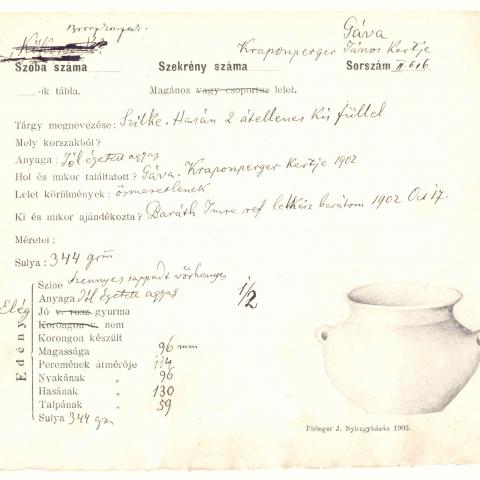 Gáva
Kraponperger János Kertje
Szoba száma Szekrény száma Sorszám II.616.
-ik tábla. Magános vagy csoportos lelet.
Tárgy megnevezése: Szilke. Hasán 2 átellenes kis füllel
Mely korszakból?
Anyaga: Jól égetett agyag
Hol és mikor találtatott? Gáva. Kraponperger Kertje 1902
Lelet körülmények: ösmeretlenek
Ki és mikor ajándékozta? Baráth Imre ref lelkész barátom 1902 Oct 17.
Méretei:
Sulya: 344 grm
Edény
Szine Szennyes sappadt vörhenyes
Anyaga Jól égetett agyag 1/2
Elég Jó v. rosz gyurma
Korongon v. nem
Korongon készült
Magassága 96 mm
Peremének átmérője 114
Nyakának „ 96
Hasának „ 130
Talpának „ 59
Sulya 344 grm
Piringer J. Nyiregyházán 1903.